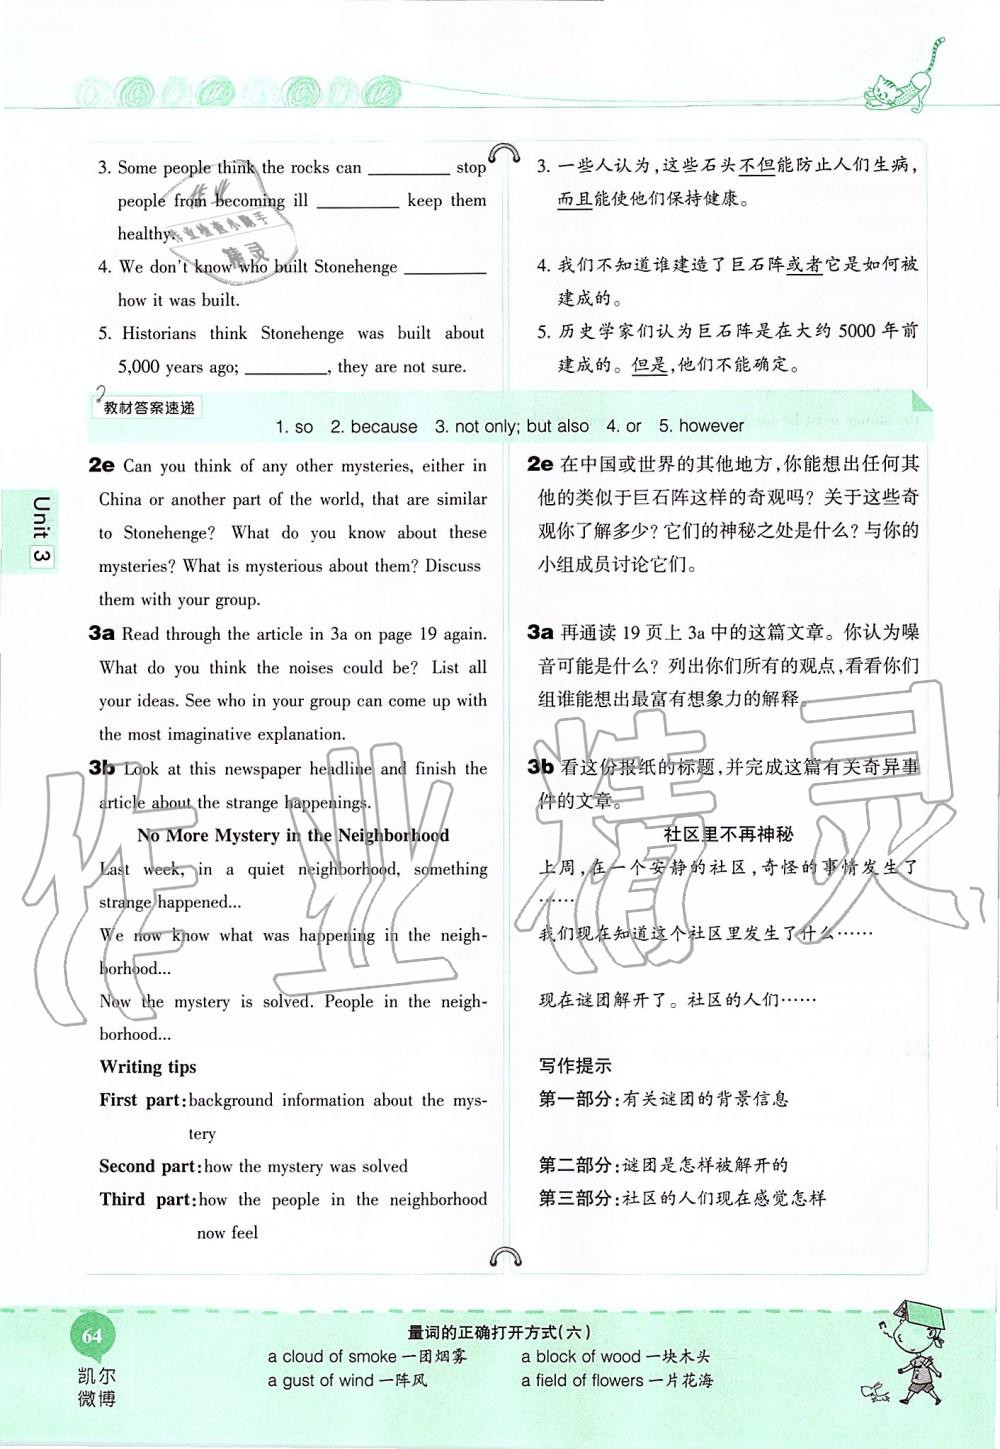 3. Some people think the rocks can ________ stop
people from becoming ill ________ keep them
healthy.
4. We don't know who built Stonehenge ________
how it was built.
5. Historians think Stonehenge was built about
5,000 years ago; ________, they are not sure.
3. 一些人认为,这些石头不但能防止人们生病,
而且能使他们保持健康。
4. 我们不知道谁建造了巨石阵或者它是如何被
建成的。
5. 历史学家们认为巨石阵是在大约 5000 年前
建成的。但是,他们不能确定。
教材答案速递
1. so 2. because 3. not only; but also 4. or 5. however
Unit 3
2e Can you think of any other mysteries, either in
China or another part of the world, that are similar
to Stonehenge? What do you know about these
mysteries? What is mysterious about them? Discuss
them with your group.
3a Read through the article in 3a on page 19 again.
What do you think the noises could be? List all
your ideas. See who in your group can come up with
the most imaginative explanation.
3b Look at this newspaper headline and finish the
article about the strange happenings.
No More Mystery in the Neighborhood
Last week, in a quiet neighborhood, something
strange happened...
We now know what was happening in the neigh-
borhood...
Now the mystery is solved. People in the neigh-
borhood...
Writing tips
First part:background information about the mys-
tery
Second part:how the mystery was solved
Third part:how the people in the neighborhood
now feel
2e 在中国或世界的其他地方,你能想出任何其
他的类似于巨石阵这样的奇观吗? 关于这些奇
观你了解多少? 它们的神秘之处是什么? 与你的
小组成员讨论它们。
3a 再通读 19 页上 3a 中的这篇文章。你认为噪
音可能是什么? 列出你们所有的观点,看看你们
组谁能想出最富有想象力的解释。
3b 看这份报纸的标题,并完成这篇有关奇异事
件的文章。
社区里不再神秘
上周,在一个安静的社区,奇怪的事情发生了
……
我们现在知道这个社区里发生了什么……
现在谜团解开了。社区的人们……
写作提示
第一部分:有关谜团的背景信息
第二部分:谜团是怎样被解开的
第三部分:社区的人们现在感觉怎样
作业精灵
作业
作业检查小助手
精灵
64
凯尔
微博
量词的正确打开方式(六)
a cloud of smoke 一团烟雾 a block of wood 一块木头
a gust of wind 一阵风 a field of flowers 一片花海